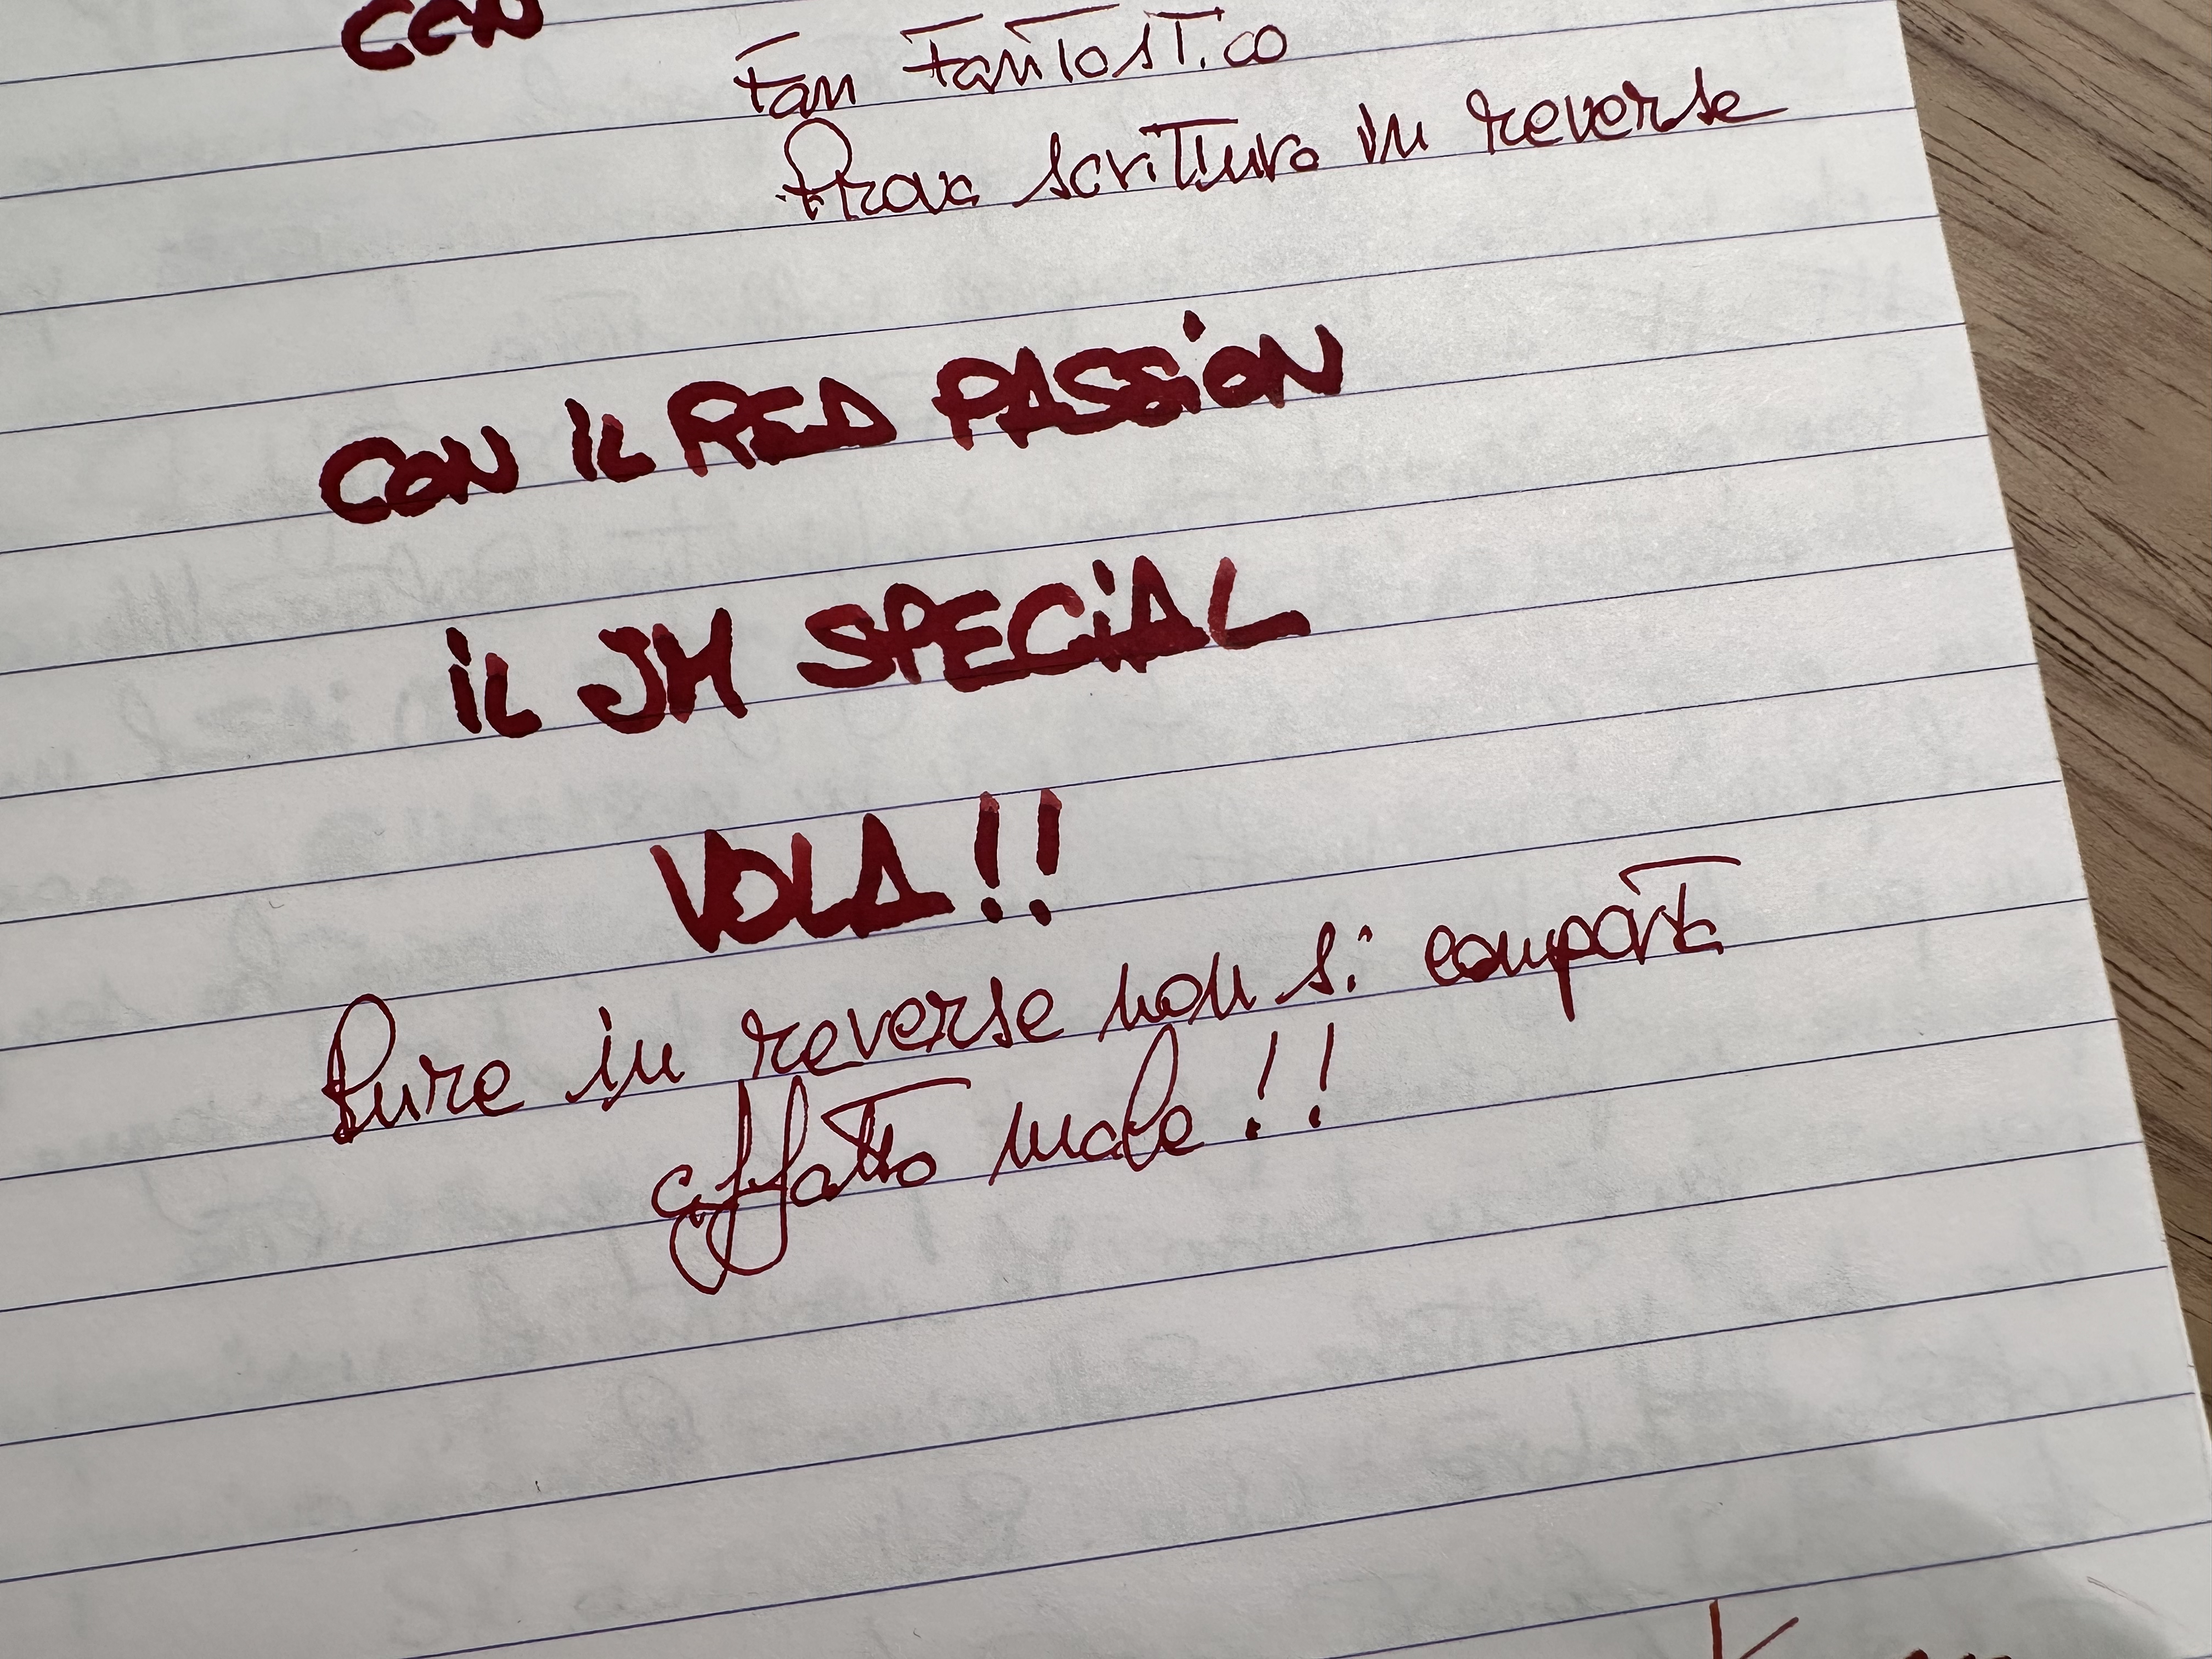 CON
Fan Fantastico
Prova scrittura in reverse
CON IL RED PASSiON
iL JM SPECiAL
VOLA!!
Pure in reverse non si comporta
affatto male!!